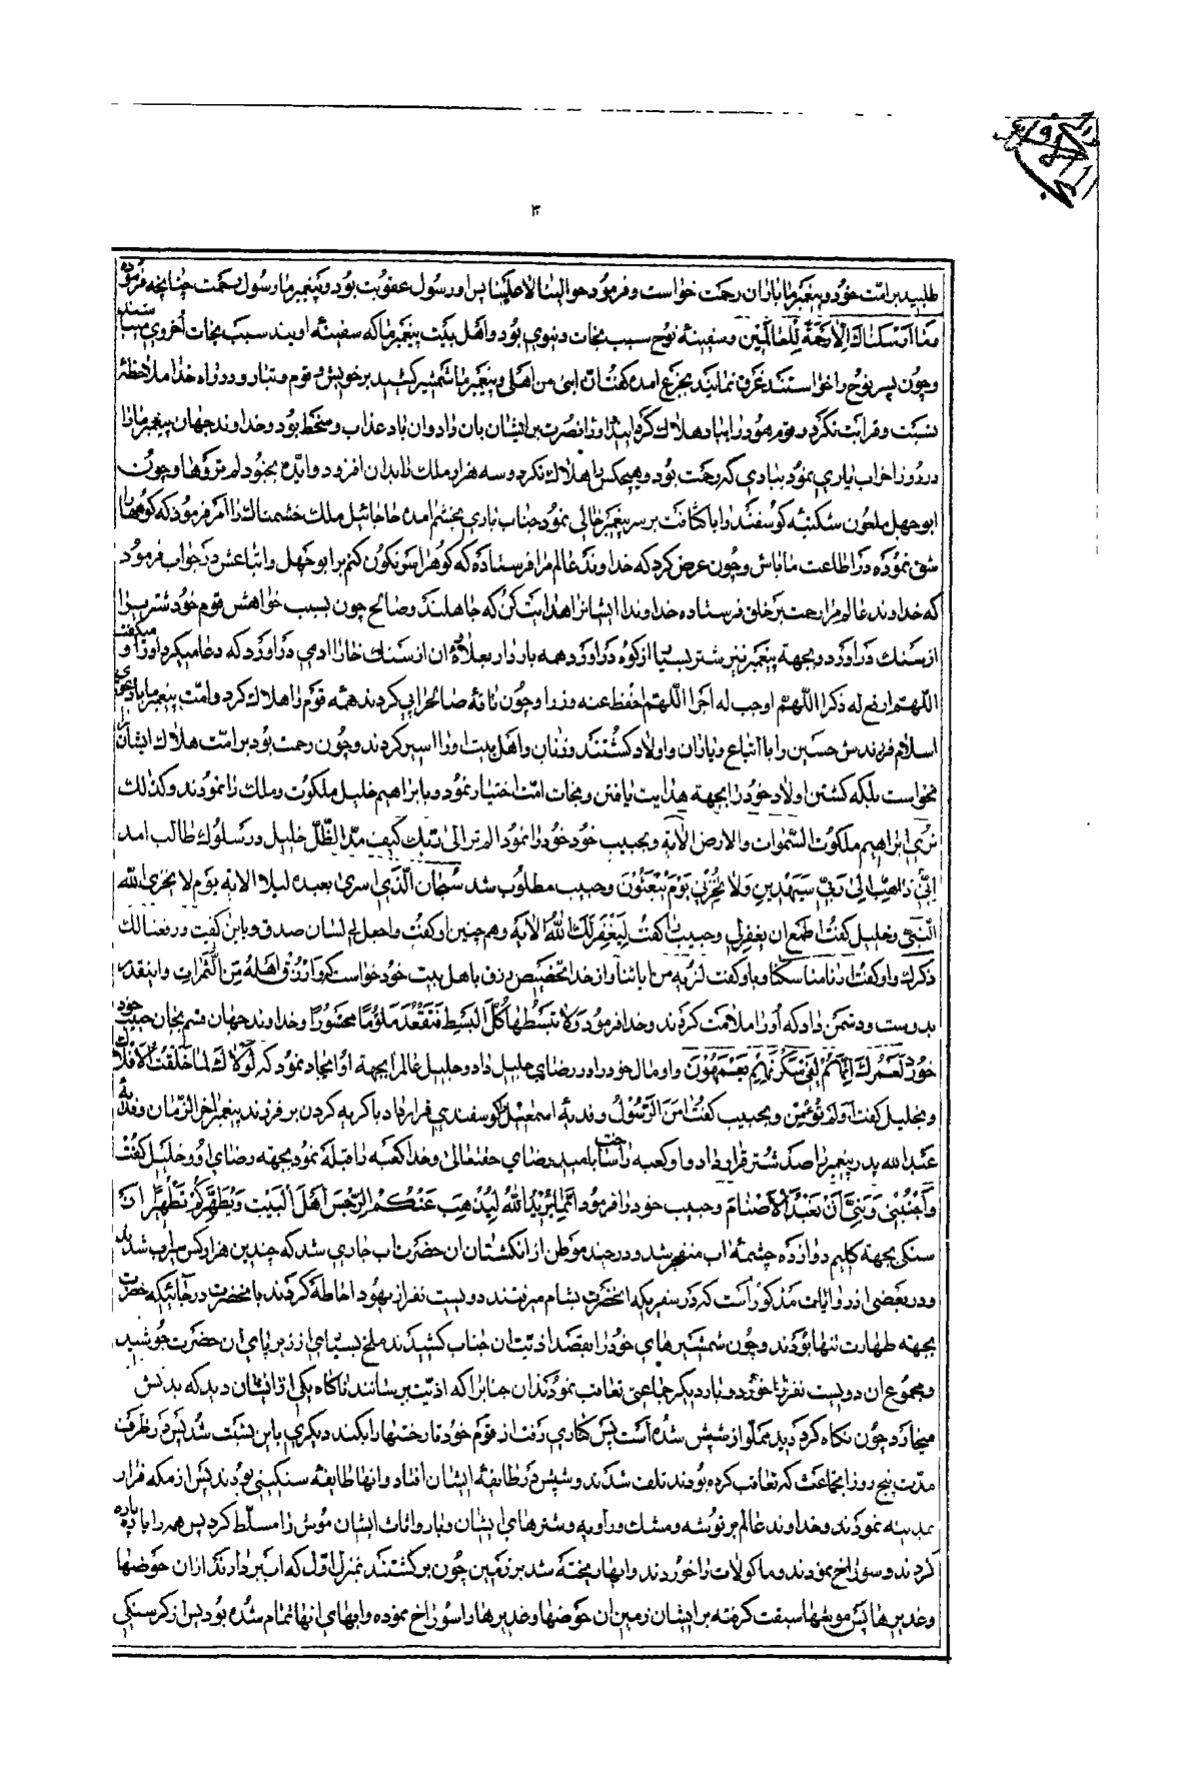 ۳
طلبید بر امت خود و پیغمبر ما باران رحمت خواست و فرمود حوالینا لا علینا پس او رسول عقوبت بود و پیغمبر ما رسول رحمت چنانچه فرموده
وَمَا أَرْسَلْنَاكَ إِلَّا رَحْمَةً لِلْعَالَمِینَ و سفینهٔ نوح سبب نجات دنیوی بود و اهل بیت پیغمبر ما که سفینهٔ اویند سبب نجات اخروی میباشند
و چون پسر نوح را خواستند غرق نمایند بجزع امده گفت ان ابنی من اهلی و پیغمبر ما شمشیر کشید بر خویش و قوم و تبار و در راه خدا ملاحظهٔ
نسبت و قرابت نکرد و قوم هود را بباد هلاک کرد لیذا و را نصرت بر ایشان بان داد و ان باد عذاب و سخط بود و خداوند جهان پیغمبر ما را
در روز احزاب یاری نمود ببادی که رحمت بود و هیچکس را هلاک نکرد و سه هزار ملک را بدان افزود و ایّده بجنود لم تروها و چون
ابو جهل ملعون شکنبهٔ گوسفند را با کثافت بر سر پیغمبر خالی نمود جناب باری بخشم امده جاجائیل ملک خشمناک را امر فرمود که کوهها را
شق نموده در اطاعت ما باش و چون عرض کرد که خداوند عالم مرا فرستاده که کوهرا سرنگون کنم بر ابو جهل و اتباعش در جواب فرمود
که خداوند عالم مرا رحمت بر خلق فرستاده خداوندا ایشانرا هدایت کن که جاهلند و صالح چون بسبب خواهش قوم خود شتریرا
از سنک دراورد و بجهة پیغمبر نیز شتر بسیار از کوه دراورد همه باردار بعلاوهٔ ان از سنک خارا ادمی دراورد که دعا میکرد اورا و میگفت
اللهم ارفع له ذکرا اللهم اوجب له اجرا اللهم احفظ عنه وزرا و چون ناقهٔ صالح را پی کردند همه قوم را هلاک کرد و امت پیغمبر ما با دعوی
اسلام فرزندش حسین را با اتباع و یاران و اولاد کشتند و زنان و اهل بیت اورا اسیر کردند و چون رحمت بود بر امت هلاک ایشان را
نخواست بلکه کشتن اولاد خود را بجهة هدایت یافتن و نجات امت اختیار نمود و بابراهیم خلیل ملکوت و ملک را نمودند و کذلک
نری ابراهیم ملکوت السموات والارض الآیة و بحبیب خود خود را نمود الم تر الی ربک کیف مدّ الظّل خلیل در سلوک طالب امد
اِنّی ذاهب الی ربّی سیهدین وَلا تخزنی یوم یبعثون و حبیب مطلوب شد سبحان الّذی اسری بعبده لیلا الایة یوم لا یخزی الله
النبی و خلیل گفت اطمع ان یغفر لی و حبیب را گفت لیغفر لک اللهُ الآیة و همچنین او گفت واجعل لی لسان صدق و باین گفت ورفعنا لک
ذکرک و او گفت ارنا مناسکنا و باو گفت لنریه من ایاتنا و از خدا تخصیص رزق باهل بیت خود خواست که وارزق اهله من الثمرات و اینقدر
بدوست و دشمن داد که اورا ملامت کردند و خدا فرمود وَلا تبسطها کلّ البسط فتقعد ملوما محسورا و خداوند جهان قسم بجان حبیب خود
خورد لعمرک انهم لفی سکرتهم یعمهون و او مال خود را در رضای جلیل داد و جلیل عالم را بجهة او ایجاد نمود که لولاک لما خلقت الافلاک
و بخلیل گفت اولم تؤمن و بحبیب گفت امن الرسول و فدیهٔ اسمعیل را گوسفندی قرار داد با گریه کردن بر فرزند پیغمبر اخر الزمان و فدیهٔ
عبدالله پدر پیغمبر را صد شتر قرار داد و او کعبه را ساخت بامید رضای حقتعالی و خدا کعبه را قبله نمود بجهة رضای او و خلیل گفت
واجنبنی وبنی أن نعبد الاصنام و حبیب خود را فرمود انّما یرید الله لیذهب عنکم الرجس اهل البیت ویطهرکم تطهیرا از
سنگی بجهة کلیم دوازده چشمهٔ اب منفجر شد و در چند موطن از انگشتان ان حضرت اب جاری شد که چندین هزار کس سیراب شدند
و در بعضی از روایات مذکور است که در سفریکه انحضرت بشام میرفتند دویست نفر از یهود احاطه کردند بانحضرت در حالتیکه حضرت
بجهة طهارت تنها بودند و چون شمشیرهای خود را بقصد اذیت ان جناب کشیدند ملخ بسیاری از زیر پای ان حضرت جوشید
و مجموع ان دویست نفر را خورد و بار دیگر جماعتی تعاقب نمودند ان جنابرا که اذیت برسانند ناگاه یکی از ایشان دید که بدنش
میخارد چون نگاه کرد دید مملو از شپش شده است پس کناری رفت از قوم خود تا رختها را بکند دیگری باین نسبت شد پس در ظرف
مدت پنج روز انجماعت که تعاقب کرده بودند تلف شدند و شپش در طایفهٔ ایشان افتاد و انها طایفهٔ سنگینی بودند پس از مکه فرار
بمدینه نمودند و خداوند عالم بر توشه و مشک و راویه و شترهای ایشان و بار و اثاث ایشان موش را مسلط کرد پس همه را پاره پاره
کردند و سوراخ نمودند و ماکولات را خوردند و ابها ریخته شد بر زمین چون برگشتند بمنزل اول که اب بردارند از ان حوضها
و غدیرها پس موشها سبقت گرفته بر ایشان زمین ان حوضها و غدیرها را سوراخ نموده و ابهای انها تمام شده بود پس از گرسنگی